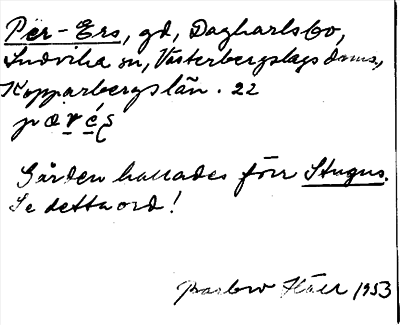 Per-Ers, gd, Dagkarlsbo,
Ludvika sn, Västerbergslags doms.,
Kopparbergs län. 22
Gården kallades förr Stugus.
Se detta ord!
1953